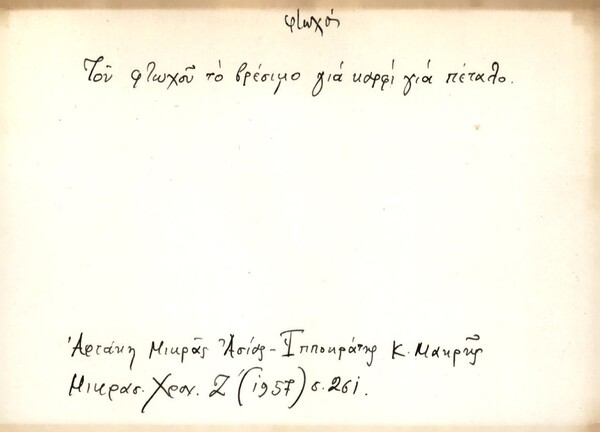 φτωχός
Τοῦ φτωχοῦ τὸ βρέσιμο γιά καρφί γιά πέταλο.
Ἀρτάκη Μικρᾶς Ἀσίας - Ἱπποκράτης Κ. Μακρῆς
Μικρασ. Χρον. Ζ΄ (1957) σ. 261.